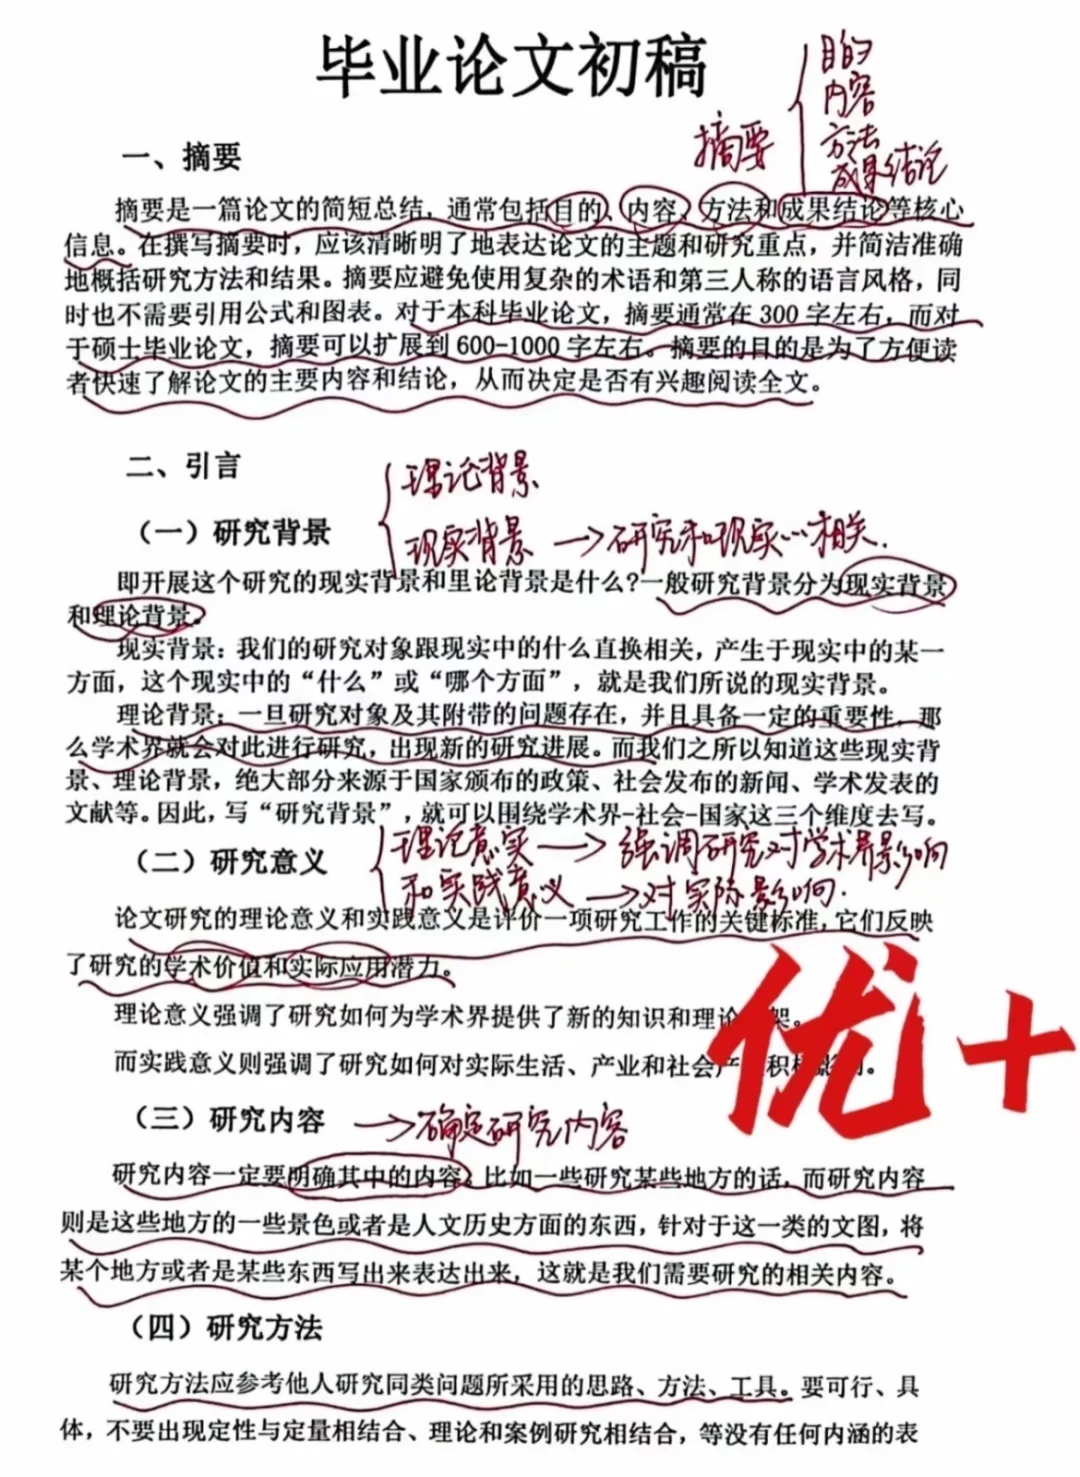 毕业论文初稿
目的
内容
方法
成果结论
摘要
一、摘要
摘要是一篇论文的简短总结，通常包括目的、内容、方法和成果结论等核心
信息。在撰写摘要时，应该清晰明了地表达论文的主题和研究重点，并简洁准确
地概括研究方法和结果。摘要应避免使用复杂的术语和第三人称的语言风格，同
时也不需要引用公式和图表。对于本科毕业论文，摘要通常在 300 字左右，而对
于硕士毕业论文，摘要可以扩展到 600-1000 字左右。摘要的目的是为了方便读
者快速了解论文的主要内容和结论，从而决定是否有兴趣阅读全文。
二、引言
理论背景
（一）研究背景
现实背景 →研究和现实…相关.
即开展这个研究的现实背景和里论背景是什么?一般研究背景分为现实背景
和理论背景。
现实背景：我们的研究对象跟现实中的什么直换相关，产生于现实中的某一
方面，这个现实中的“什么”或“哪个方面”，就是我们所说的现实背景。
理论背景：一旦研究对象及其附带的问题存在，并且具备一定的重要性，那
么学术界就会对此进行研究，出现新的研究进展。而我们之所以知道这些现实背
景、理论背景，绝大部分来源于国家颁布的政策、社会发布的新闻、学术发表的
文献等。因此，写“研究背景”，就可以围绕学术界-社会-国家这三个维度去写。
理论意实 → 强调研究对学术界影响
（二）研究意义
和实践意义 →对实际影响.
论文研究的理论意义和实践意义是评价一项研究工作的关键标准，它们反映
了研究的学术价值和实际应用潜力。
理论意义强调了研究如何为学术界提供了新的知识和理论 架。
而实践意义则强调了研究如何对实际生活、产业和社会产 积极影 。
优+
（三）研究内容 →确定研究内容
研究内容一定要明确其中的内容，比如一些研究某些地方的话，而研究内容
则是这些地方的一些景色或者是人文历史方面的东西，针对于这一类的文图，将
某个地方或者是某些东西写出来表达出来，这就是我们需要研究的相关内容。
（四）研究方法
研究方法应参考他人研究同类问题所采用的思路、方法、工具。要可行、具
体，不要出现定性与定量相结合、理论和案例研究相结合，等没有任何内涵的表